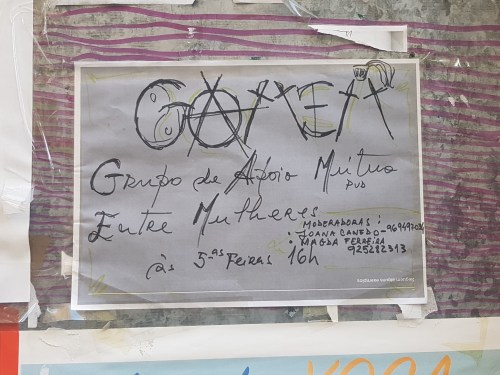 GAMEM
Grupo de Apoio Mútuo
PVD
Entre Mulheres
MODERADORAS:
• JOANA CANEDO -
• MAGDA FERREIRA
925282313
às 5-as Feiras 16h
YOGA